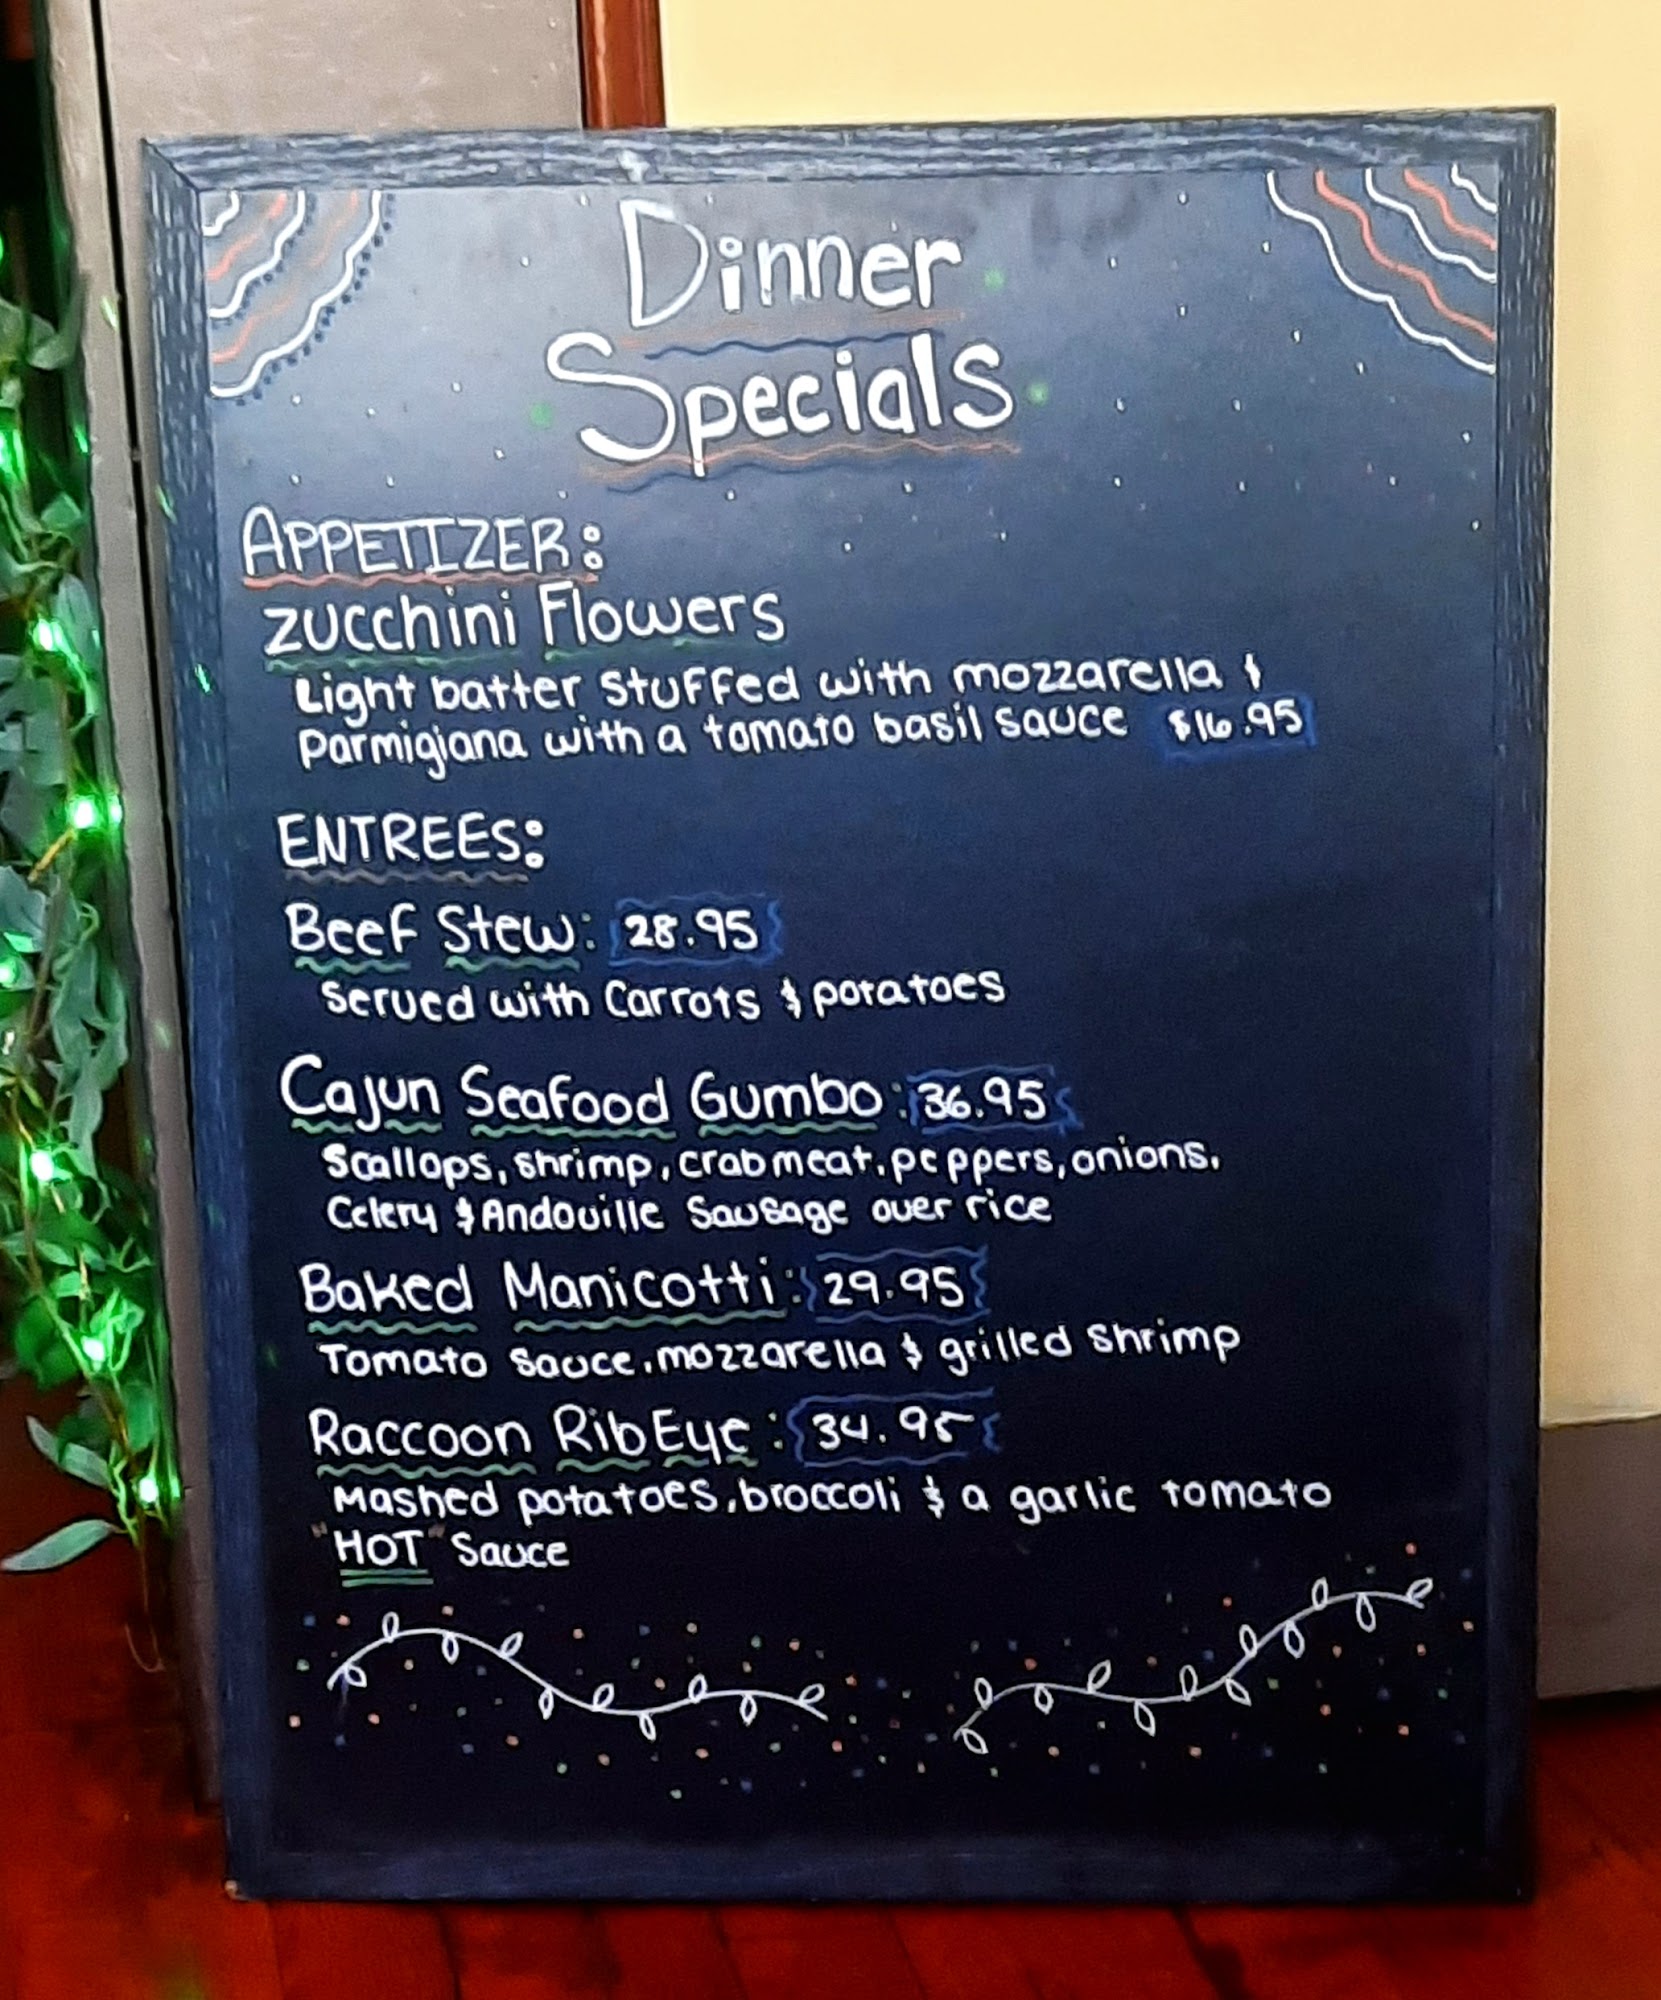 Dinner
Specials
APPETIZER:
zucchini Flowers
Light batter stuffed with mozzarella &
Parmigiana with a tomato basil sauce $16.95
ENTREES:
Beef Stew: 28.95
Served with Carrots & potatoes
Cajun Seafood Gumbo: 36.95
Scallops, shrimp, crabmeat, peppers, onions,
Celery & Andouille Sausage over rice
Baked Manicotti: 29.95
Tomato Sauce, mozzarella & grilled Shrimp
Raccoon RibEye: 34.95
Mashed potatoes, broccoli & a garlic tomato
"HOT" Sauce